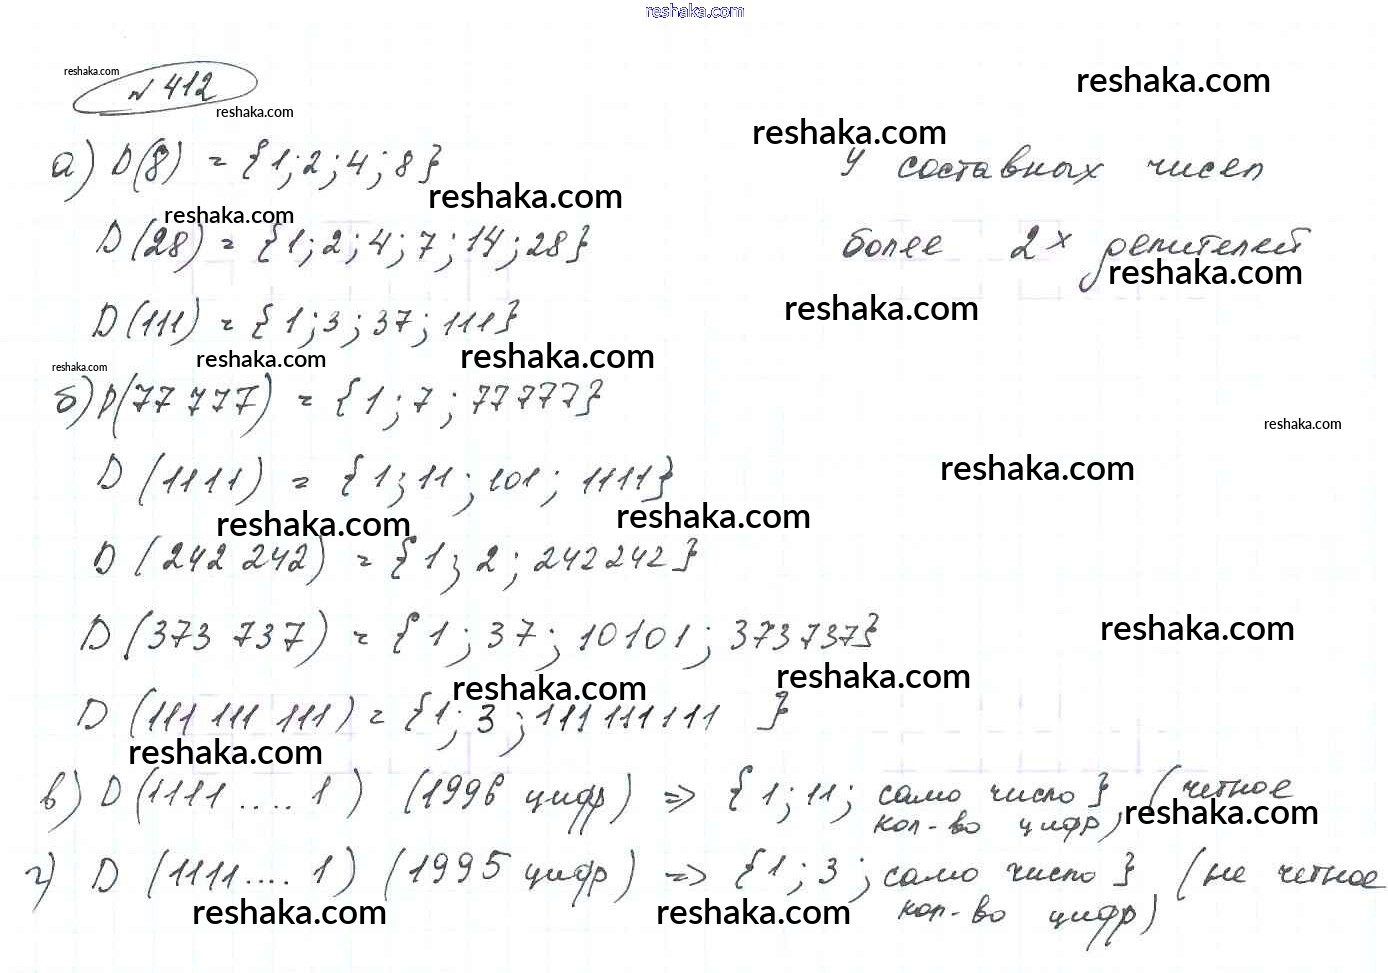 reshaka.com
reshaka.com
№ 412
reshaka.com
reshaka.com
reshaka.com
а) D(8) = {1; 2; 4; 8}
У составных чисел
reshaka.com
reshaka.com
D(28) = {1; 2; 4; 7; 14; 28}
более 2х делителей
reshaka.com
reshaka.com
D(111) = {1; 3; 37; 111}
reshaka.com
reshaka.com
reshaka.com
б) D(77 777) = {1; 7; 77777}
reshaka.com
reshaka.com
D(1111) = {1; 11; 101; 1111}
reshaka.com
reshaka.com
D(242 242) = {1; 2; 242242}
D(373 737) = {1; 37; 10101; 373737}
reshaka.com
reshaka.com
reshaka.com
D(111 111 111) = {1; 3; 111111111}
reshaka.com
в) D(1111....1) (1996 цифр) => {1; 11; само число} (четное
кол-во цифр)
reshaka.com
г) D(1111....1) (1995 цифр) => {1; 3; само число} (не четное
кол-во цифр)
reshaka.com
reshaka.com